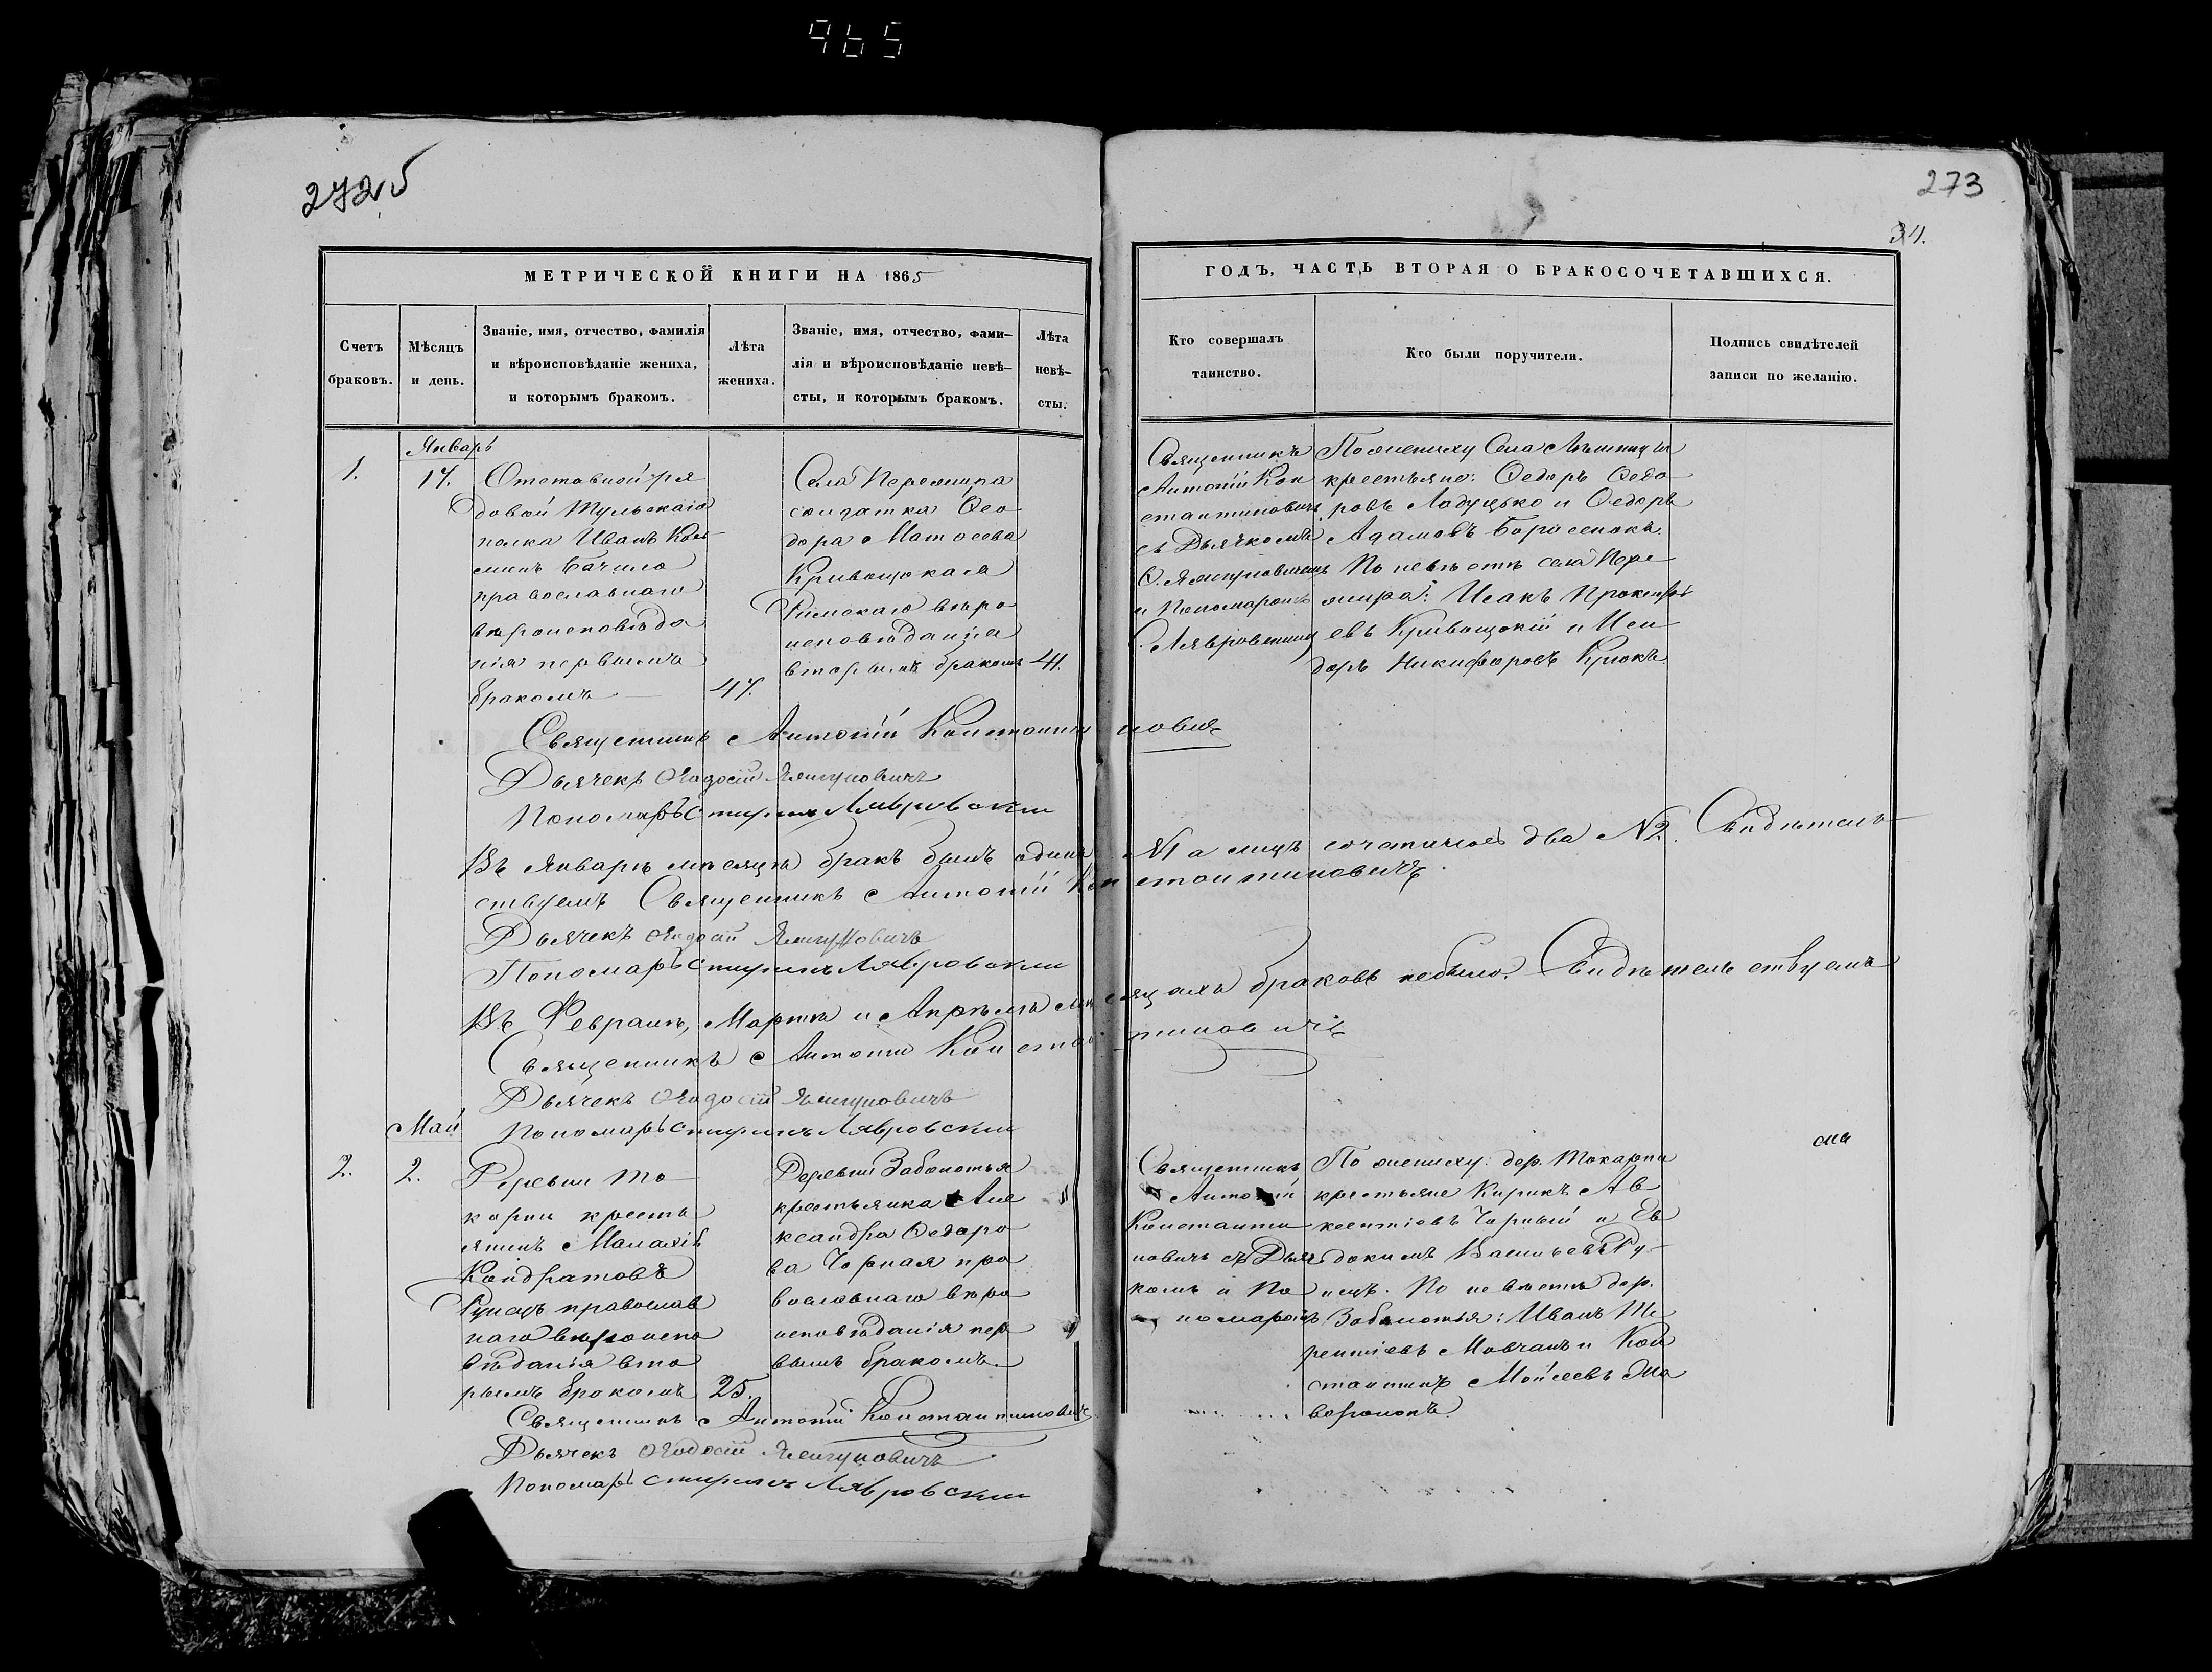 965
272об
273
34.
МЕТРИЧЕСКОЙ КНИГИ НА 1865
ГОДЪ, ЧАСТЬ ВТОРАЯ О БРАКОСОЧЕТАВШИХСЯ.
Счетъ браковъ.
Мѣсяцъ и день.
Званіе, имя, отчество, фамилія
и вѣроисповѣданіе жениха,
и которымъ бракомъ.
Лѣта жениха.
Званіе, имя, отчество, фами–
лія и вѣроисповѣданіе невѣ–
сты, и которымъ бракомъ.
Лѣта невѣ–сты.
Кто совершалъ таинство.
Кто были поручители.
Подпись свидѣтелей
записи по желанію.
Январь
1.
17.
Отставной ря
довой Тульскаго
полка Иванъ
Бачило
православнаго
вѣроисповѣда
нія первымъ
бракомъ
47.
Села
солдатка Өео
дора Матѳеева
Кривоцокая
Римскаго вѣро
исповѣданія
вторымъ бракомъ
41.
Священникъ
Антоній Кон
стантиновичъ
съ Дьячкомъ
Ѳ. Ячмуновичемъ
и Пономаромъ
С. Лявровскимъ
По жениху Села
крестьяне: Ѳедоръ Ѳедо
ровъ Ладуцько и Ѳедоръ
Адамовъ Борисенокъ.
По невѣстѣ села Пере
жира: Исакъ Прокофь
евъ Кривоцкій и Иси
доръ Никифоровъ Крюкъ
Священникъ Антоній Константиновичъ
Дьячекъ Ѳеодосій
Пономарь Спиридонъ Лявровскій
Въ Январѣ мѣсяцѣ бракъ былъ одинъ №1 а лицъ сочеталось два №2. Свидѣтель
ствуемъ Священникъ Антоній Константиновичъ
Дьячекъ Ѳеодосій
Пономарь Спиридонъ Лявровскій
Въ Февралѣ, Мартѣ и Апрѣлѣ мѣсяцахъ браковъ небыло. Свидѣтельствуемъ
Священникъ Антоній Константиновичъ
Дьячекъ Ѳеодосій
Пономарь Спиридонъ Лявровскій
Май
2.
2.
Деревни То
карни кресть
янинъ Малахій
Кондратовъ
православ
наго вѣроиспо
вѣданія вто
рымъ бракомъ
25.
Деревни Заболотья
крестьянка Але
ксандра Ѳедоро
ва Чорная пра
вославнаго вѣро
исповѣданія пер
вымъ бракомъ.
Священникъ
Антоній
Константи
новичъ съ Дьяч
комъ и По
номаромъ
По жениху: дер. Токарни
крестьяне Кирикъ Ав
ксентіевъ Чорный и Ев
докимъ Васильевъ Ру
нецъ. По невѣстѣ дер.
Заболотья: Иванъ Те
рентіевъ Мовчанъ и Кон
стантинъ Моисеевъ
Священникъ Антоній Константиновичъ
Дьячекъ Ѳеодосій
Пономарь Спиридонъ Лявровскій